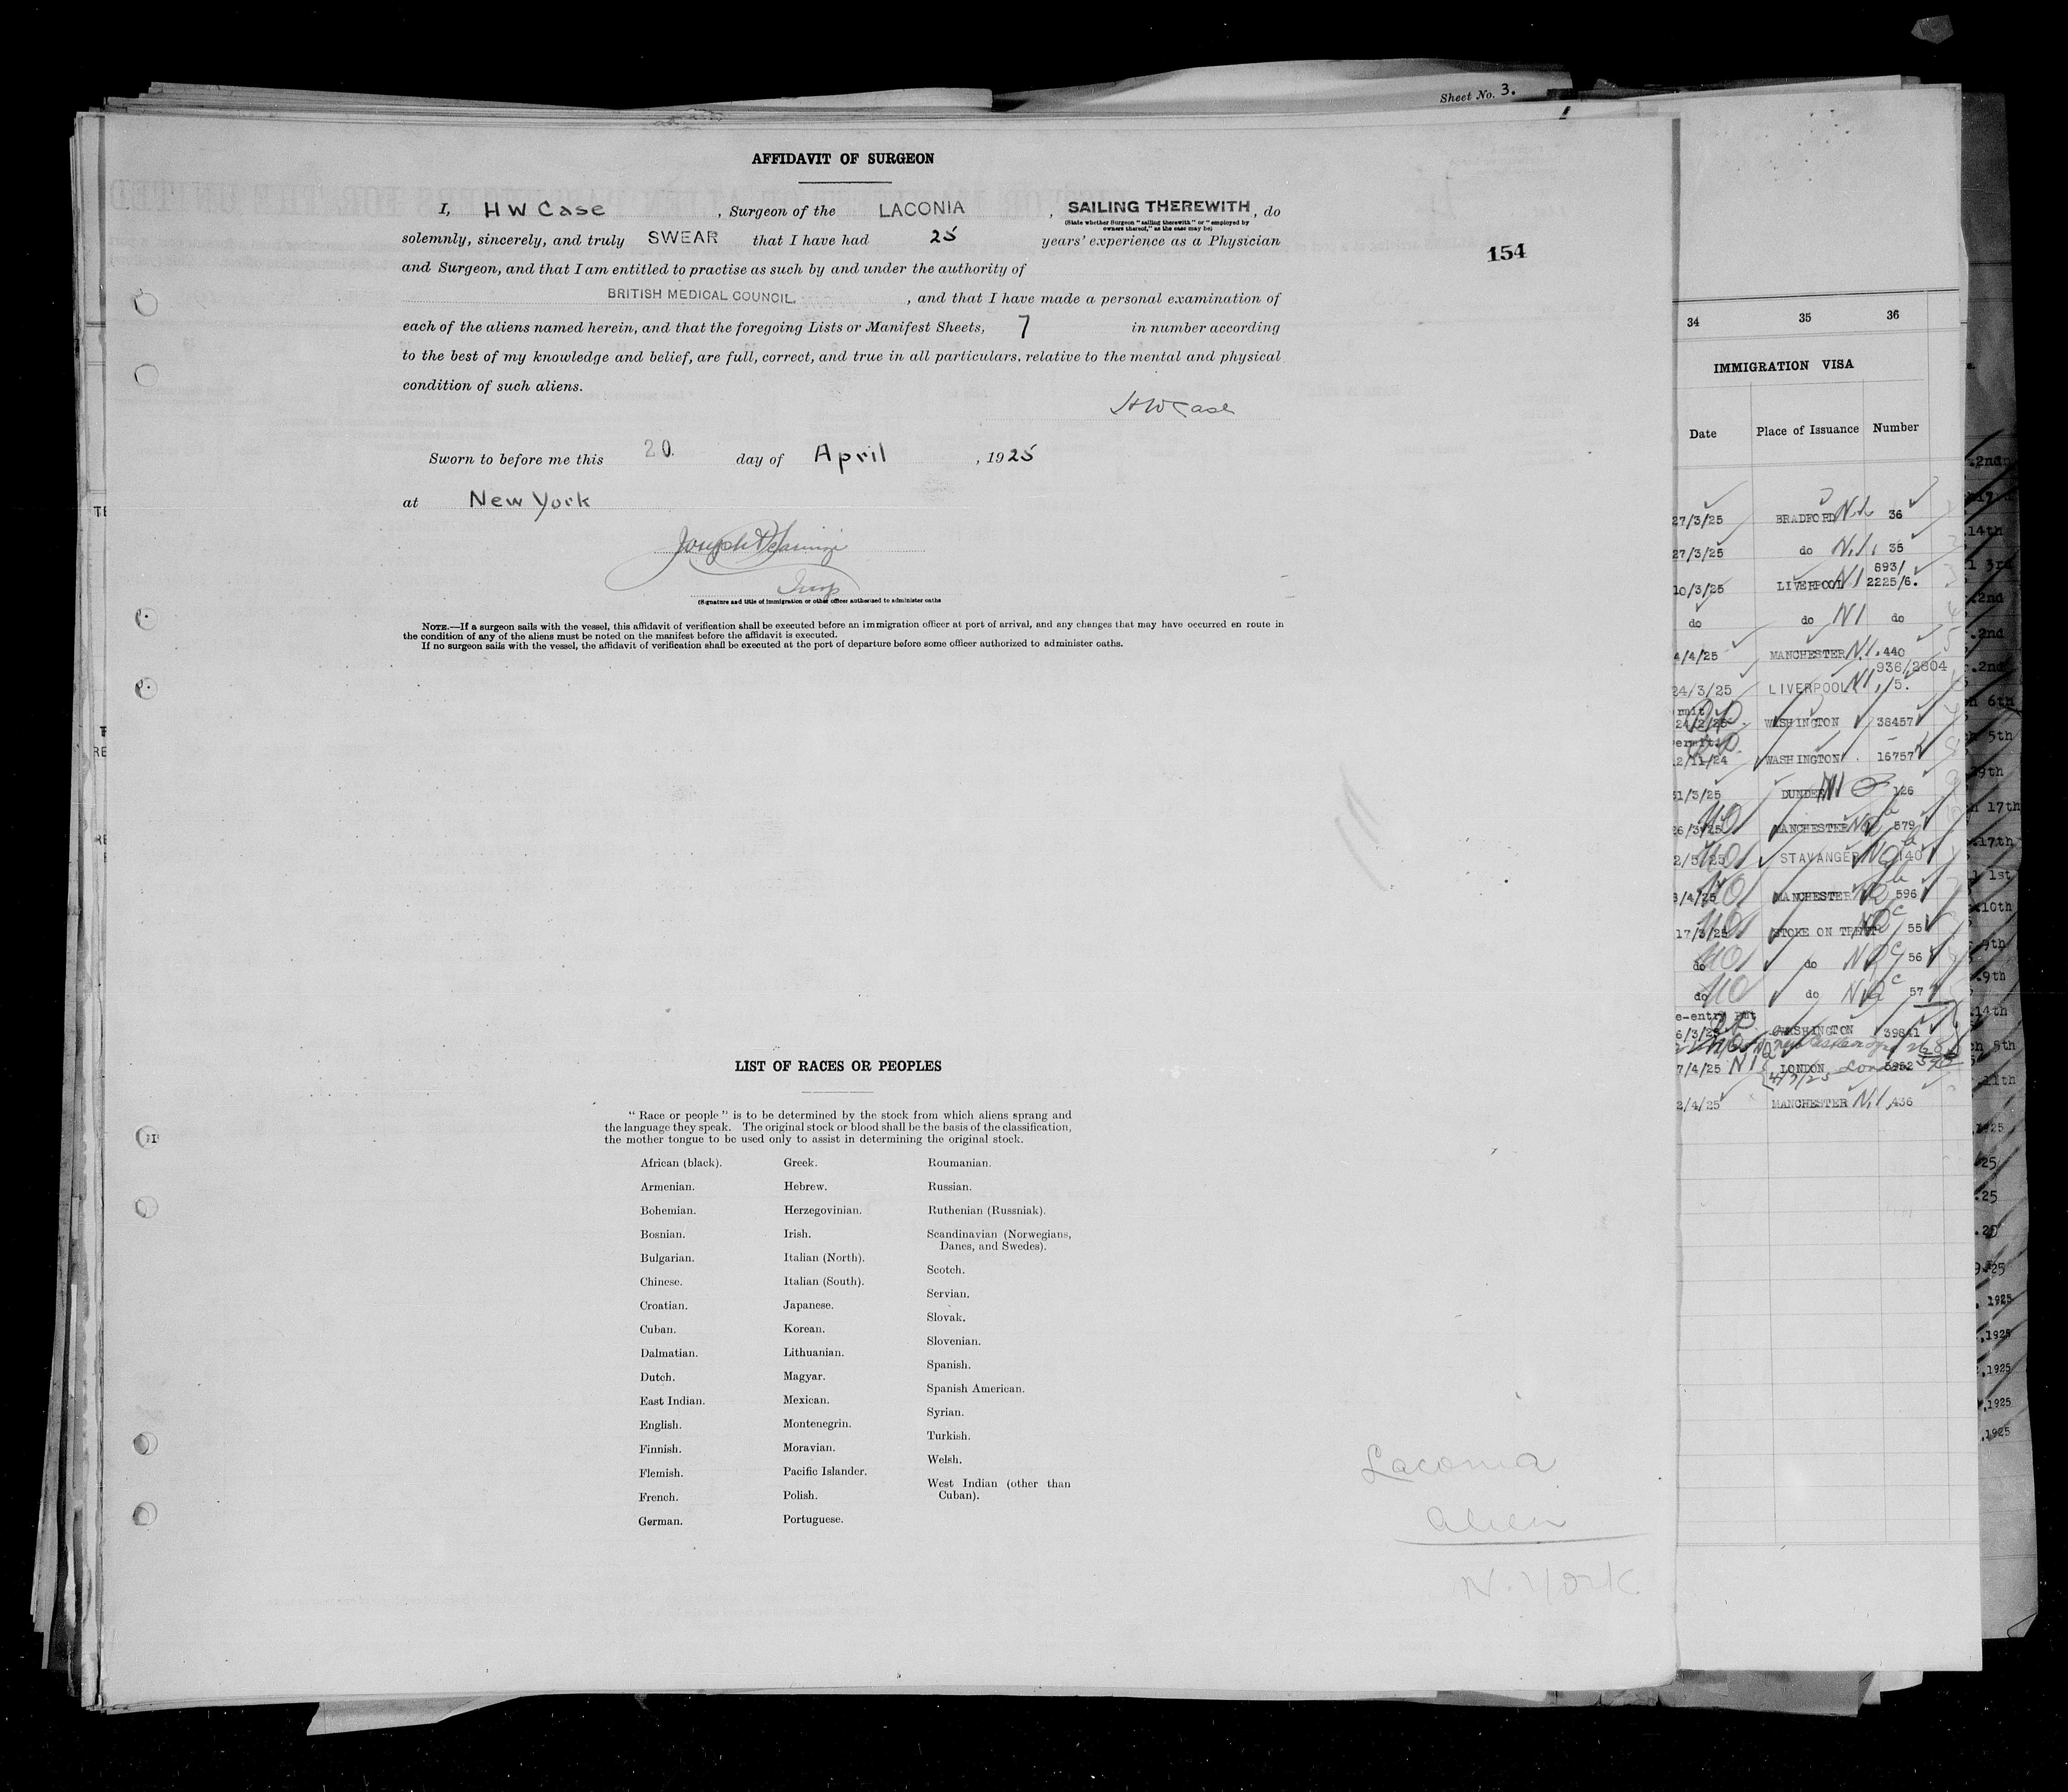 Sheet No. 3.
AFFIDAVIT OF SURGEON
I, H W Case, Surgeon of the LACONIA, SAILING THEREWITH, do
(State whether Surgeon "sailing therewith" or "employed by
owners thereof," as the case may be)
solemnly, sincerely, and truly SWEAR that I have had 25 years' experience as a Physician
154
and Surgeon, and that I am entitled to practise as such by and under the authority of
BRITISH MEDICAL COUNCIL, and that I have made a personal examination of
each of the aliens named herein, and that the foregoing Lists or Manifest Sheets, 7 in number according
to the best of my knowledge and belief, are full, correct, and true in all particulars, relative to the mental and physical
condition of such aliens.
H W Case
Sworn to before me this 20. day of April, 1925
at New York
Joseph
Insp
(Signature and title of immigration or other officer authorized to administer oaths
NOTE.—If a surgeon sails with the vessel, this affidavit of verification shall be executed before an immigration officer at port of arrival, and any changes that may have occurred en route in
the condition of any of the aliens must be noted on the manifest before the affidavit is executed.
If no surgeon sails with the vessel, the affidavit of verification shall be executed at the port of departure before some officer authorized to administer oaths.
LIST OF RACES OR PEOPLES
"Race or people" is to be determined by the stock from which aliens sprang and
the language they speak. The original stock or blood shall be the basis of the classification,
the mother tongue to be used only to assist in determining the original stock.
African (black).
Armenian.
Bohemian.
Bosnian.
Bulgarian.
Chinese.
Croatian.
Cuban.
Dalmatian.
Dutch.
East Indian.
English.
Finnish.
Flemish.
French.
German.
Greek.
Hebrew.
Herzegovinian.
Irish.
Italian (North).
Italian (South).
Japanese.
Korean.
Lithuanian.
Magyar.
Mexican.
Montenegrin.
Moravian.
Pacific Islander.
Polish.
Portuguese.
Roumanian.
Russian.
Ruthenian (Russniak).
Scandinavian (Norwegians,
Danes, and Swedes).
Scotch.
Servian.
Slovak.
Slovenian.
Spanish.
Spanish American.
Syrian.
Turkish.
Welsh.
West Indian (other than
Cuban).
Laconia
Alien
N. York
34 35 36
IMMIGRATION VISA
Date Place of Issuance Number
27/3/25 BRADFORD 36
27/3/25 do N.1. 35
893/
10/3/25 LIVERPOOL N1 2225/6.
do do N1 do
4/4/25 MANCHESTER N.1. 440
936/2804
24/3/25 LIVERPOOL N1 /5.
24/2/25 WASHINGTON 38457
2/11/24 WASHINGTON 16757
31/3/25 DUNDEE N1 126
26/3/25 MANCHESTER 579
2/5/25 STAVANGER 140
3/4/25 MANCHESTER 596
17/3/25 STOKE ON TRENT 55
do do 56
do do 57
6/3/25 WASHINGTON 39841
7/4/25 N1 LONDON 5952
2/4/25 MANCHESTER N.1. 436